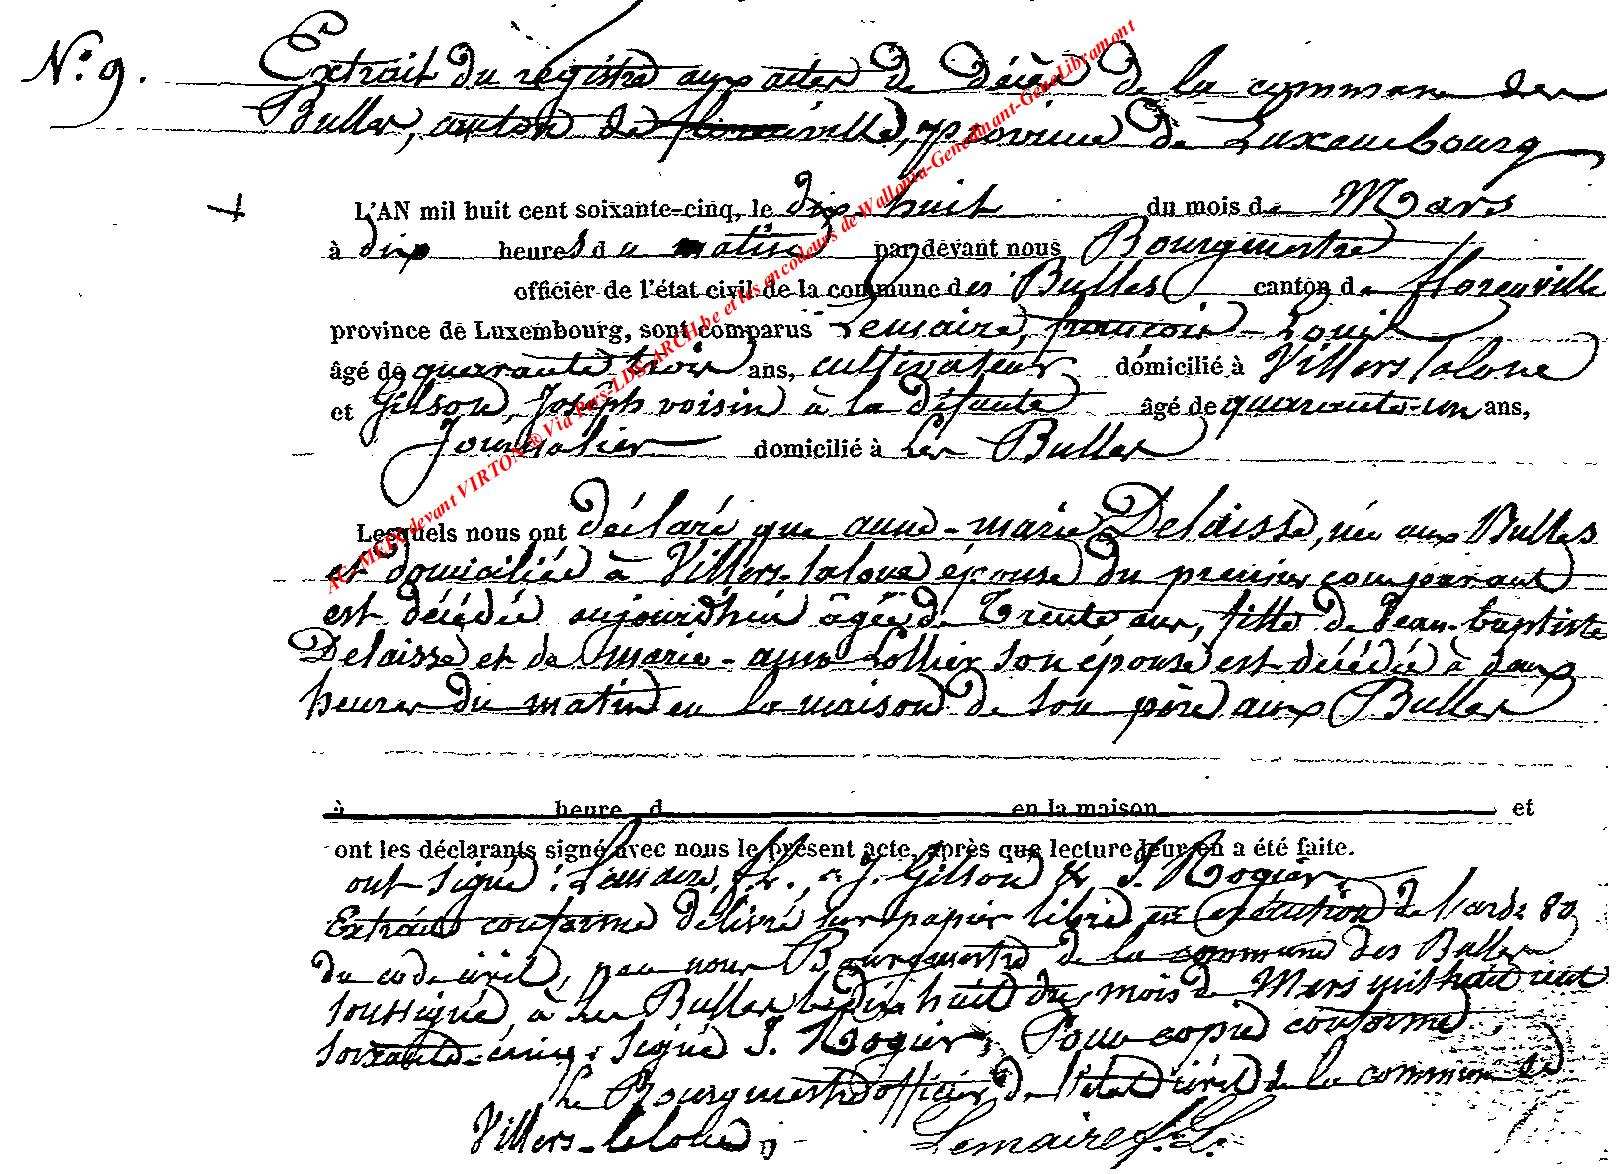 N.º 9. Extrait du registre aux actes de décès de la commune des
Bulles, canton de florenville, province de Luxembourg
L'AN mil huit cent soixante-cinq, le dix huit du mois de Mars
à dix heures du matin par devant nous Bourgmestre
officier de l'état civil de la commune des Bulles canton de florenville
province de Luxembourg, sont comparus Lemaire, françois-Louis
âgé de quarante trois ans, cultivateur domicilié à Villers laloue
et Gilson, Joseph voisin à la défunte âgé de quarante-un ans,
Journalier domicilié à Les Bulles
Lesquels nous ont déclaré que anne-marie Delaisse, née aux Bulles
et domiciliée à Villers-laloue épouse du premier comparant
est décédée aujourdhui âgée de Trente ans, fille de Jean-baptiste
Delaisse et de marie-anne Collier son épouse est décédée à deux
heures du matin en la maison de son père aux Bulles
à heure d en la maison et
ont les déclarants signé avec nous le présent acte, après que lecture leur en a été faite.
ont signé : Lemaire, f. L., J. Gilson & J. Rogier.
Extrait conforme délivré sur papier libre en exécution de l'arde 80
du code civil, par nous Bourgmestre de la commune des Bulles
soussigné, à Les Bulles le dix huit du mois de Mars mil huit cent
soixante-cinq. signé J. Rogier, Pour copie conforme
Le Bourgmestre officier de l'état civil de la commune de
Villers-laloue,
Lemaire f. L.
devant VIRTON ® Via Pays-LDS-ARCH.be et les encodeurs de Wallonia-GeneDinant-GeneLibramont